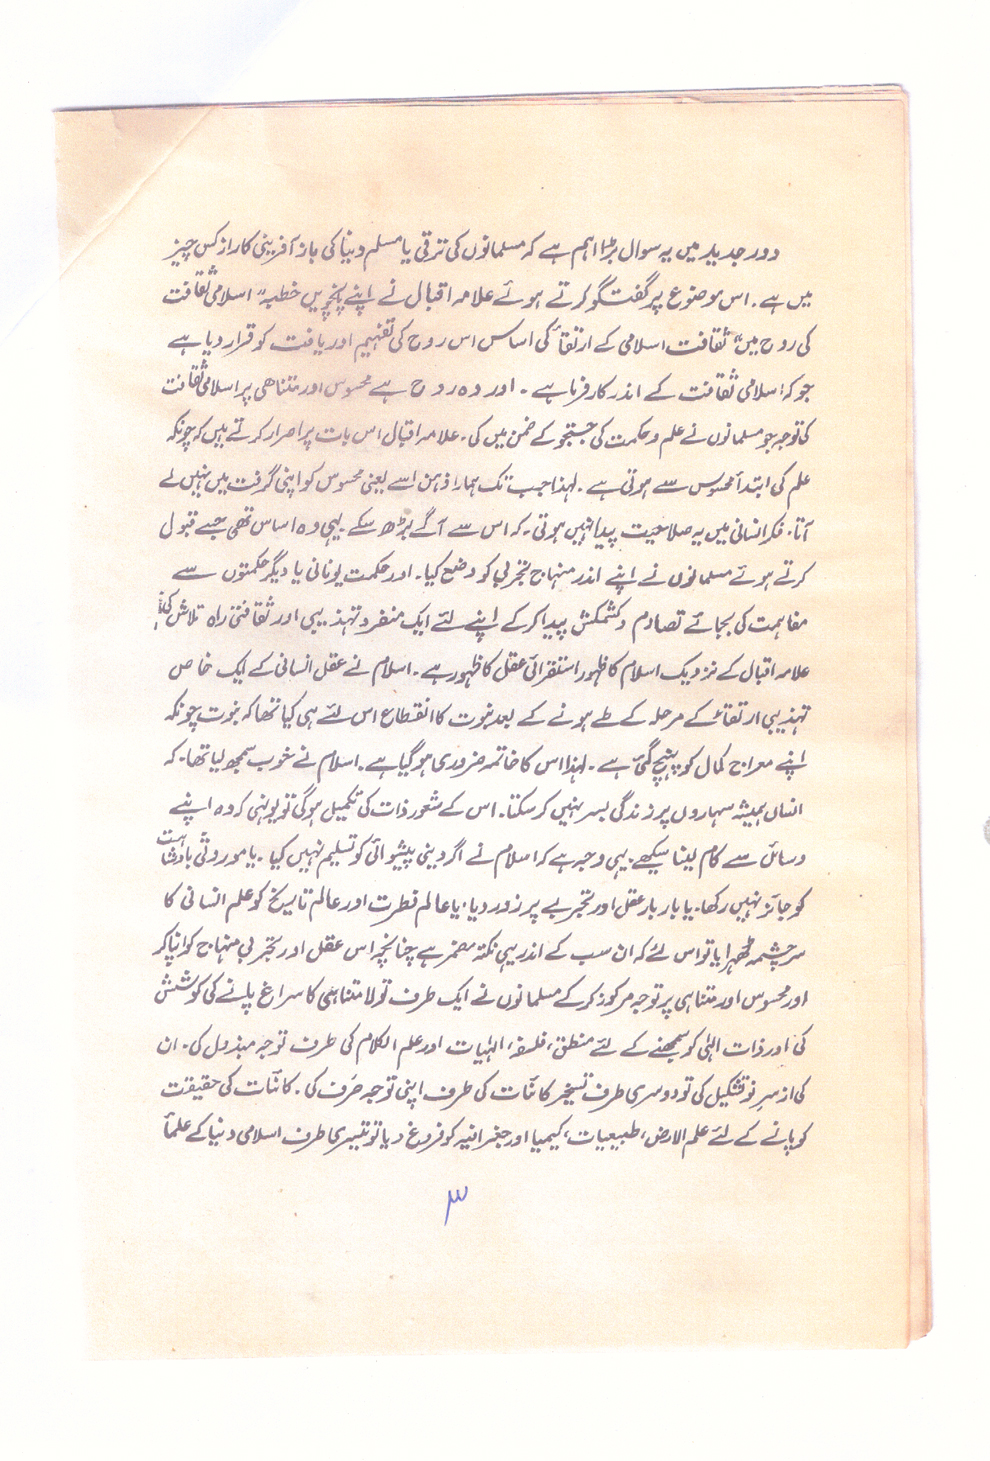 دور جدید میں یہ سوال بڑا اہم ہے کہ مسلمانوں کی ترقی یا مسلم دنیا کی باز آفرینی کا راز کس چیز
میں ہے۔ اس موضوع پر گفتگو کرتے ہوئے علامہ اقبال نے اپنے پانچویں خطبہ "اسلامی ثقافت
کی روح میں" ثقافت اسلامی کے ارتقأ کی اساس اس روح کی تفہیم اور یافت کو قرار دیا ہے
جو کہ اسلامی ثقافت کے اندر کارفرما ہے۔ اور وہ روح ہے محسوس اور متناھی پر اسلامی ثقافت
کی توجہ جو مسلمانوں نے علم و حکمت کی جستجو کے ضمن میں کی۔ علامہ اقبال اس بات پر اصرار کرتے ہیں کہ چونکہ
علم کی ابتدأ محسوس سے ہوتی ہے۔ لہذا جب تک ہمارا ذہن اسے یعنی محسوس کو اپنی گرفت میں نہیں لے
آتا۔ فکر انسانی میں یہ صلاحیت پیدا نہیں ہوتی۔ کہ اس سے آگے بڑھ سکے۔ یہی وہ اساس تھی جسے قبول
کرتے ہوئے مسلمانوں نے اپنے اندر منہاج تجربی کو وضع کیا۔ اور حکمت یونانی یا دیگر حکمتوں سے
مفاہمت کی بجائے تصادم و کشمکش پیدا کر کے اپنے لئے ایک منفرد تہذیبی اور ثقافتی راہ تلاش کی
علامہ اقبال کے نزدیک اسلام کا ظہور استقرائی عقل کا ظہور ہے۔ اسلام نے عقل انسانی کے ایک خاص
تہذیبی ارتقأ کے مرحلہ کے طے ہونے کے بعد نبوت کا انقطاع اس لئے ہی کیا تھا کہ نبوت چونکہ
اپنے معراج کمال کو پہنچ گئی ہے۔ لہذا اس کا خاتمہ ضروری ہو گیا ہے۔ اسلام نے خوب سمجھ لیا تھا۔ کہ
انسان ہمیشہ سہاروں پر زندگی بسر نہیں کر سکتا۔ اس کے شعور ذات کی تکمیل ہوگی تو یونہی کہ وہ اپنے
وسائل سے کام لینا سیکھے۔ یہی وجہ ہے کہ اسلام نے اگر دینی پیشوائی کو تسلیم نہیں کیا۔ یا موروثی بادشاہت
کو جائز نہیں رکھا۔ یا بار بار عقل اور تجربے پر زور دیا، یا عالم فطرت اور عالم تاریخ کو علم انسانی کا
سر چشمہ ٹھہرایا تو اس لئے کہ ان سب کے اندر یہی نکتہ مضمر ہے چنانچہ اس عقل اور تجربی منہاج کو اپنا کر
اور محسوس اور متناہی پر توجہ مرکوز کر کے مسلمانوں نے ایک طرف تو لامتناہی کا سراغ پانے کی کوشش
کی اور ذات الہٰی کو سمجھنے کے لئے منطق، فلسفہ، الہٰیات اور علم الکلام کی طرف توجہ مبذول کی۔ ان
کی از سر نو تشکیل کی تو دوسری طرف تسخیر کائنات کی طرف اپنی توجہ صرف کی۔ کائنات کی حقیقت
کو پانے کے لئے علم الارض، طبیعیات، کیمیا اور جغرافیہ کو فروغ دیا تو تیسری طرف اسلامی دنیا کے علمأ
۳